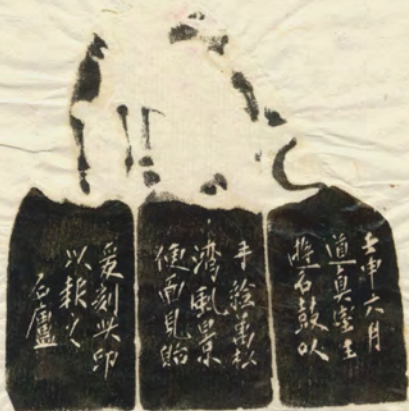 壬申六月
道真室主
臨石鼓以
手繪萬松
灣風景
便面見貽
爰刻此印
以報之
石廬